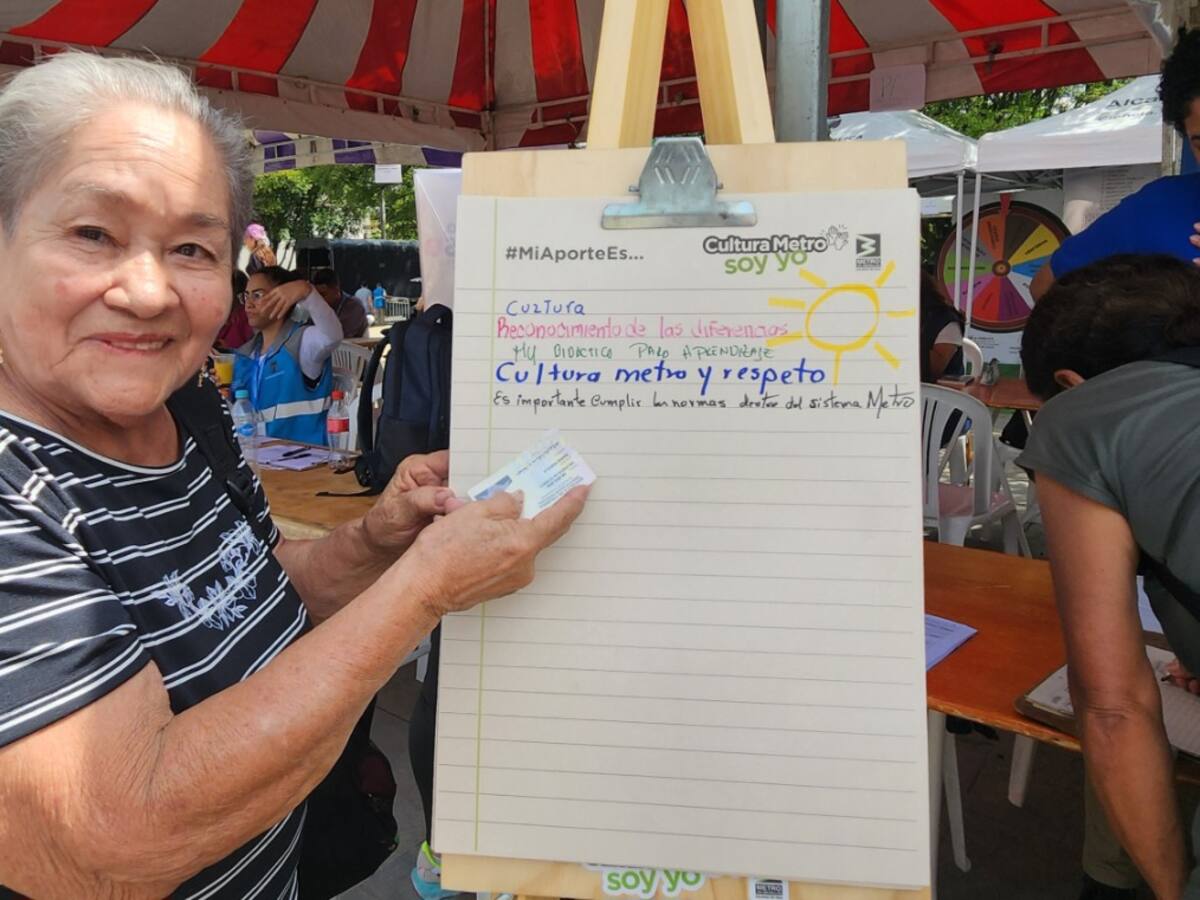 #MiAporteEs...
Cultura Metro
soy yo
METRO
Cultura
Reconocimiento de las diferencias
Muy DiDacTico PaRa APRENDIZAJE
Cultura metro y respeto
Es importante Cumplir las normas dentro del sistema Metro
soy yo
METRO
Alca